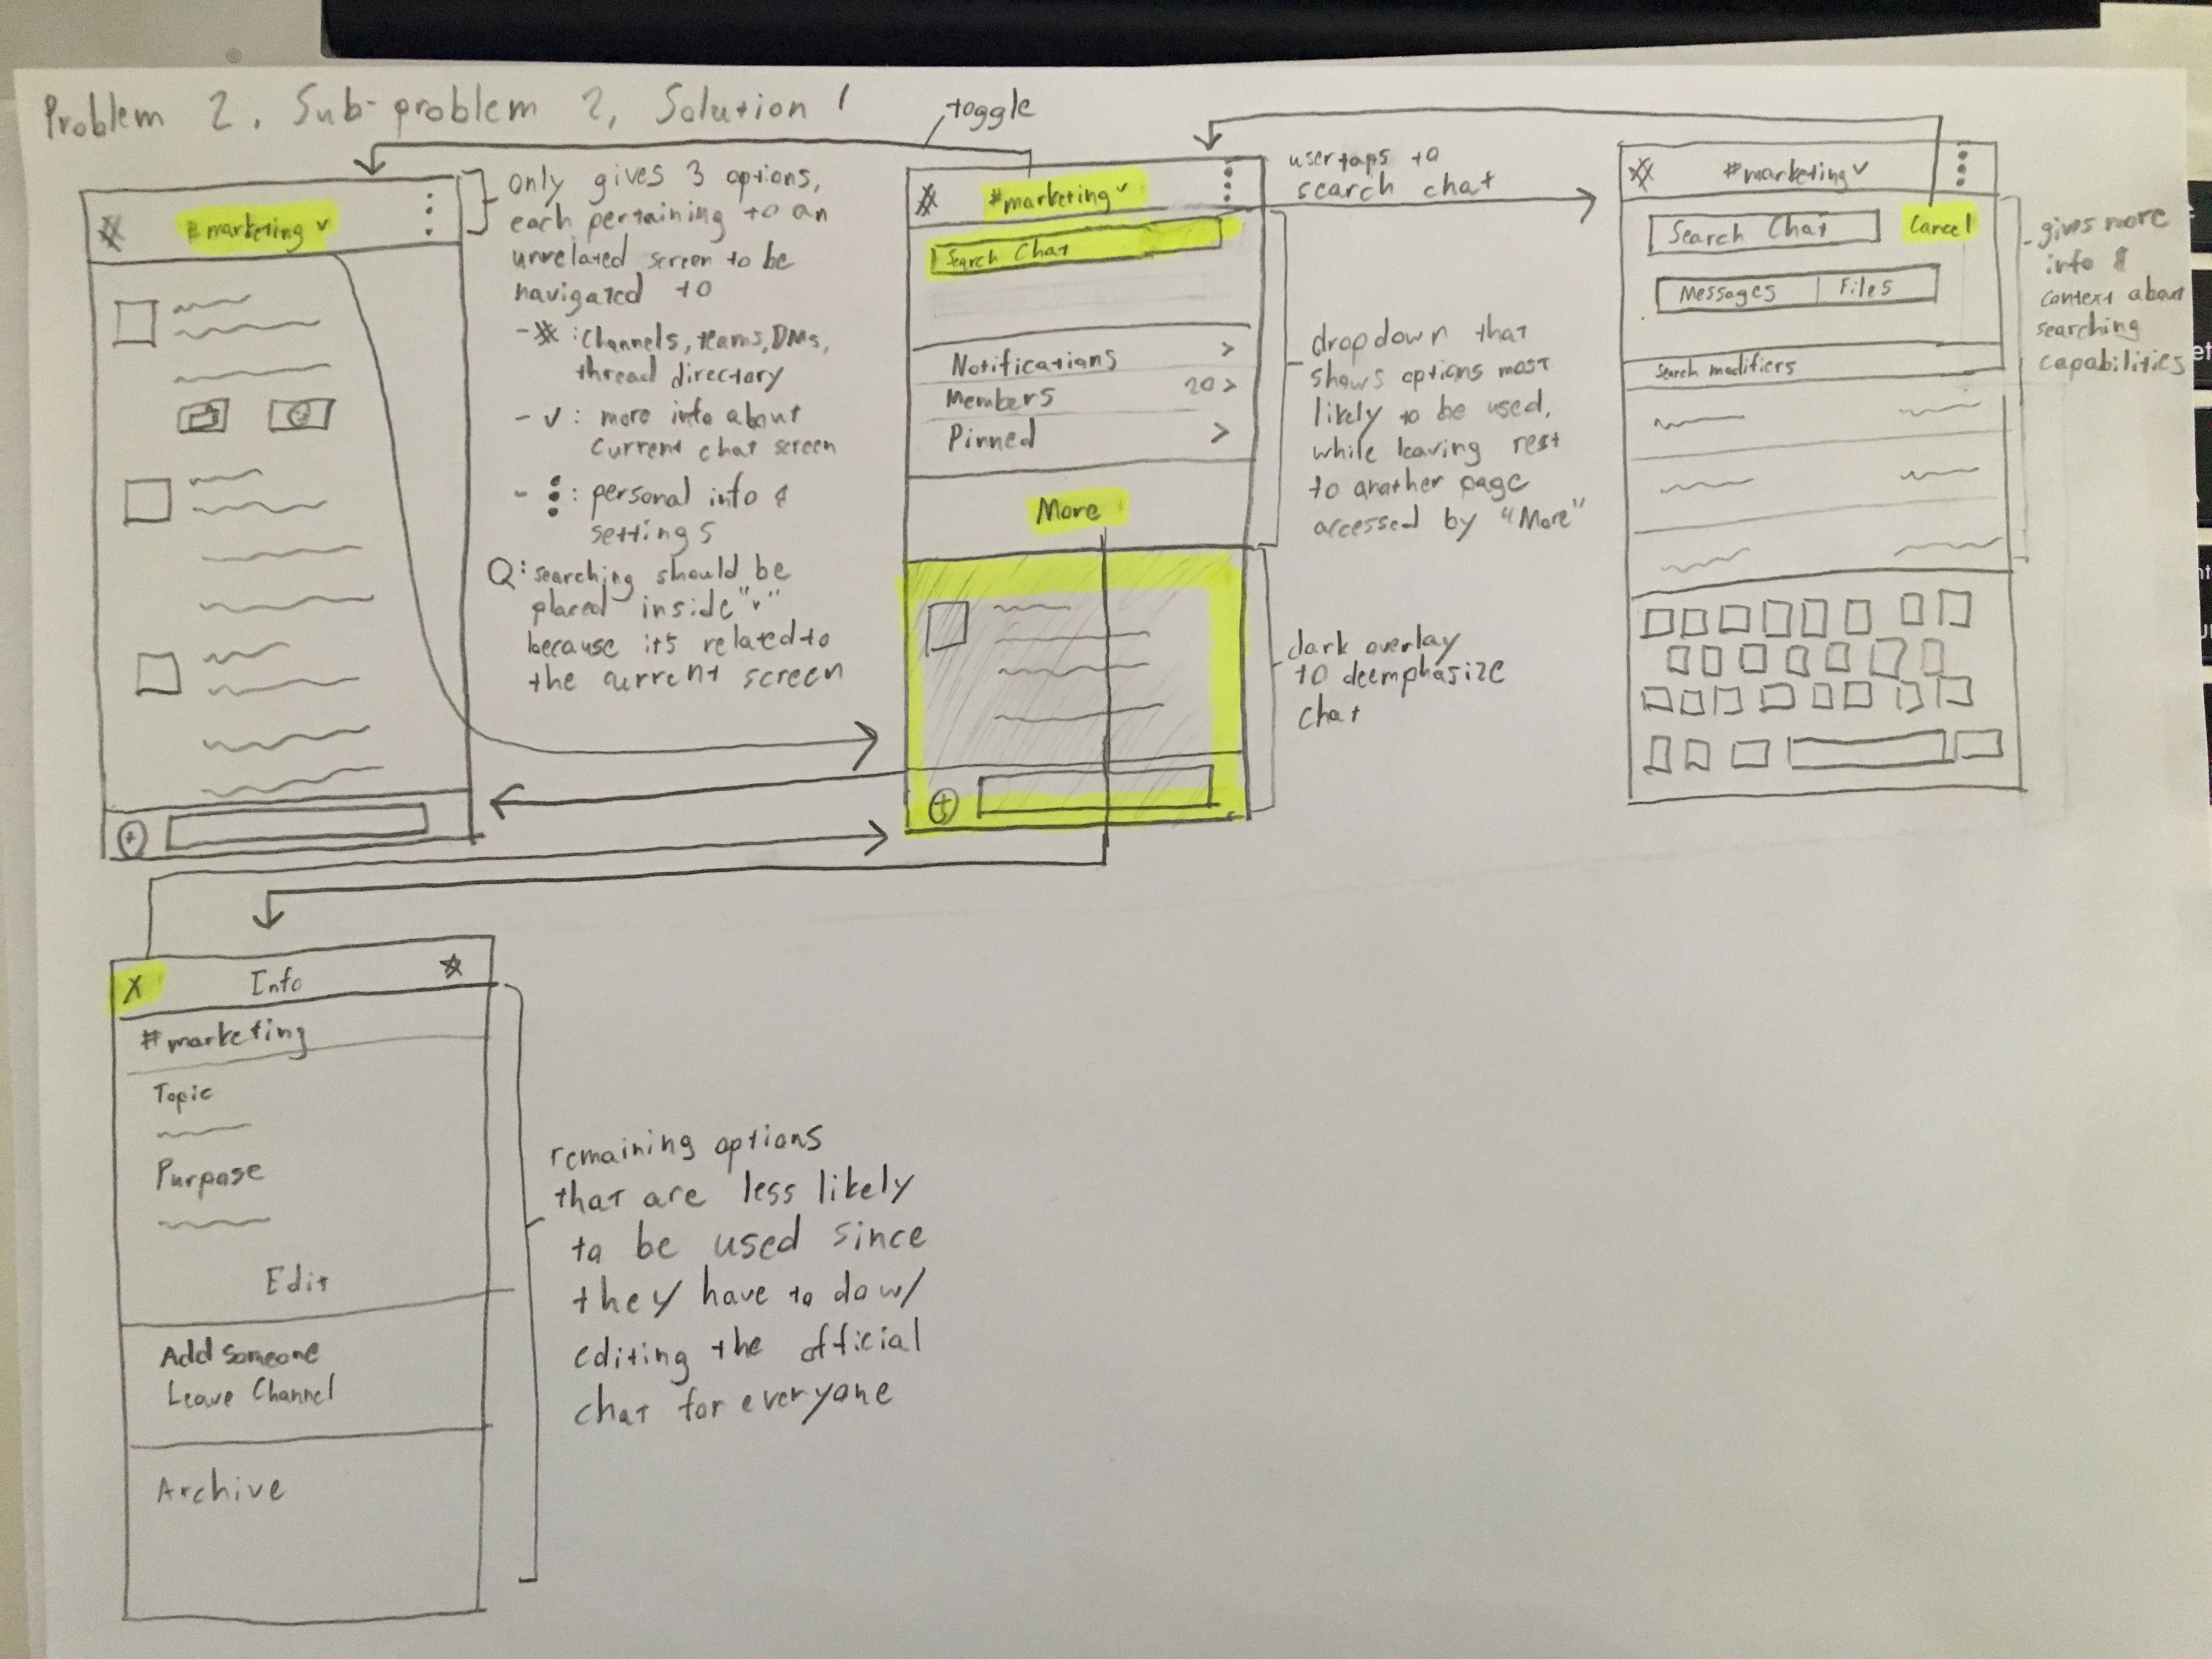 Problem 2, Sub-problem 2, Solution 1
toggle
#marketing ✓
only gives 3 options,
each pertaining to an
unrelated screen to be
navigated to
- # : Channels, teams, DMs,
thread directory
- ✓ : more info about
current chat screen
- ⋮ : personal info &
settings
Q: searching should be
placed inside "✓"
because it's related to
the current screen
#marketing ✓
Search Chat
Notifications >
Members 20 >
Pinned >
More
user taps to
search chat
dropdown that
shows options most
likely to be used,
while leaving rest
to another page
accessed by "More"
dark overlay
to deemphasize
chat
#marketing ✓
Search Chat Cancel
Messages | Files
Search modifiers
- gives more
info &
context about
searching
capabilities
X Info
#marketing
Topic
Purpose
Edit
Add Someone
Leave Channel
Archive
remaining options
that are less likely
to be used since
they have to do w/
editing the official
chat for everyone